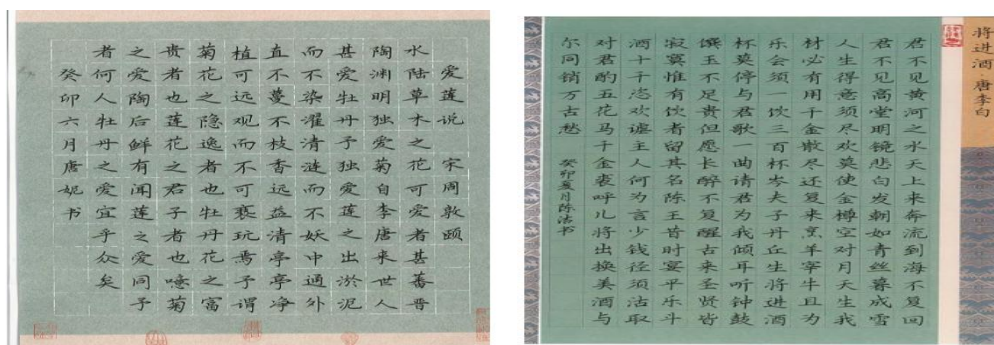 爱莲说 宋周敦颐
水陆草木之花可爱者甚蕃晋
陶渊明独爱菊自李唐来世人
甚爱牡丹予独爱莲之出淤泥
而不染濯清涟而不妖中通外
直不蔓不枝香远益清亭亭净
植可远观而不可亵玩焉予谓
菊花之隐逸者也牡丹花之富
贵者也莲花之君子者也噫菊
之爱陶后鲜有闻莲之爱同予
者何人牡丹之爱宜乎众矣
癸卯六月唐妮书
将进酒·唐李白
君不见黄河之水天上来奔流到海不复回
君不见高堂明镜悲白发朝如青丝暮成雪
人生得意须尽欢莫使金樽空对月天生我
材必有用千金散尽还复来烹羊宰牛且为
乐会须一饮三百杯岑夫子丹丘生将进酒
杯莫停与君歌一曲请君为我倾耳听钟鼓
馔玉不足贵但愿长醉不复醒古来圣贤皆
寂寞惟有饮者留其名陈王昔时宴平乐斗
酒十千恣欢谑主人何为言少钱径须沽取
对君酌五花马千金裘呼儿将出换美酒与
尔同销万古愁
癸卯夏月陈洁书